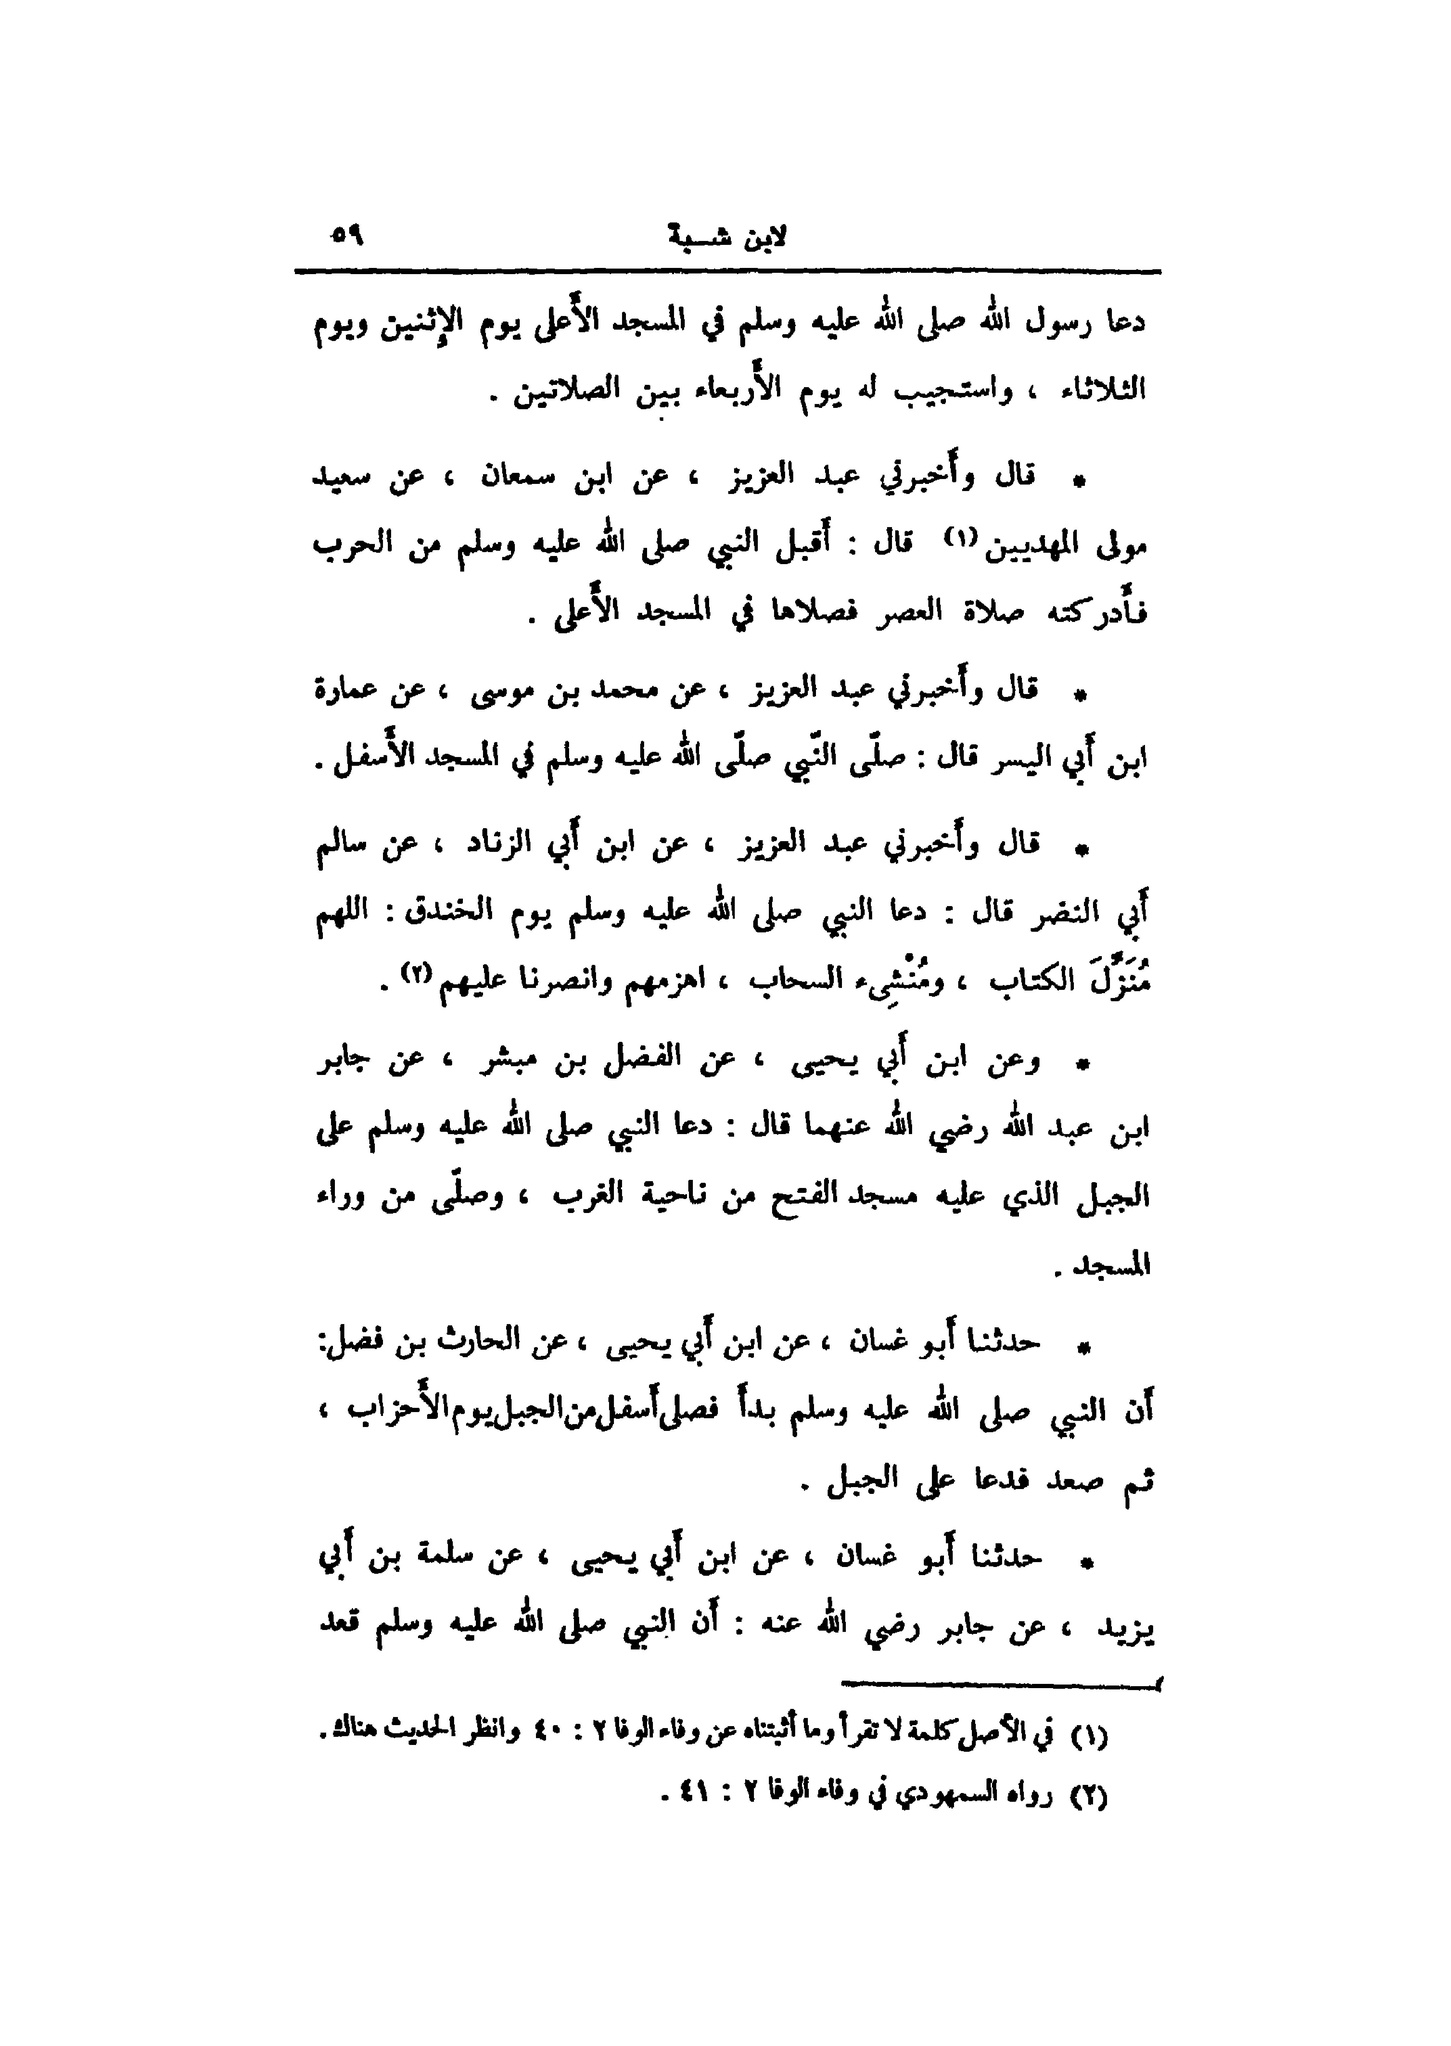 لابن شبة ٥٩
دعا رسول الله صلى الله عليه وسلم في المسجد الأَعلى يوم الإِثنين ويوم
الثلاثاء ، واستجيب له يوم الأَربعاء بين الصلاتين .
* قال وأَخبرني عبد العزيز ، عن ابن سمعان ، عن سعيد
مولى المهديين (١) قال : أَقبل النبي صلى الله عليه وسلم من الحرب
فأَدركته صلاة العصر فصلاها في المسجد الأَعلى .
* قال وأَخبرني عبد العزيز ، عن محمد بن موسى ، عن عمارة
ابن أَبي اليسر قال : صلّى النّبي صلّى الله عليه وسلم في المسجد الأَسفل .
* قال وأَخبرني عبد العزيز ، عن ابن أَبي الزناد ، عن سالم
أَبي النضر قال : دعا النبي صلى الله عليه وسلم يوم الخندق : اللهم
مُنَزِّلَ الكتاب ، ومُنْشِىء السحاب ، اهزمهم وانصرنا عليهم (٢) .
* وعن ابن أَبي يحيى ، عن الفضل بن مبشر ، عن جابر
ابن عبد الله رضي الله عنهما قال : دعا النبي صلى الله عليه وسلم على
الجبل الذي عليه مسجد الفتح من ناحية الغرب ، وصلّى من وراء
المسجد .
* حدثنا أَبو غسان ، عن ابن أَبي يحيى ، عن الحارث بن فضل:
أَن النبي صلى الله عليه وسلم بدأَ فصلى أَسفل من الجبل يوم الأَحزاب ،
ثم صعد فدعا على الجبل .
* حدثنا أَبو غسان ، عن ابن أَبي يحيى ، عن سلمة بن أَبي
يزيد ، عن جابر رضي الله عنه : أَن النبي صلى الله عليه وسلم قعد
(١) في الأصل كلمة لا تقرأ وما أثبتناه عن وفاء الوفا ٢ : ٤٠ وانظر الحديث هناك.
(٢) رواه السمهودي في وفاء الوفا ٢ : ٤١ .